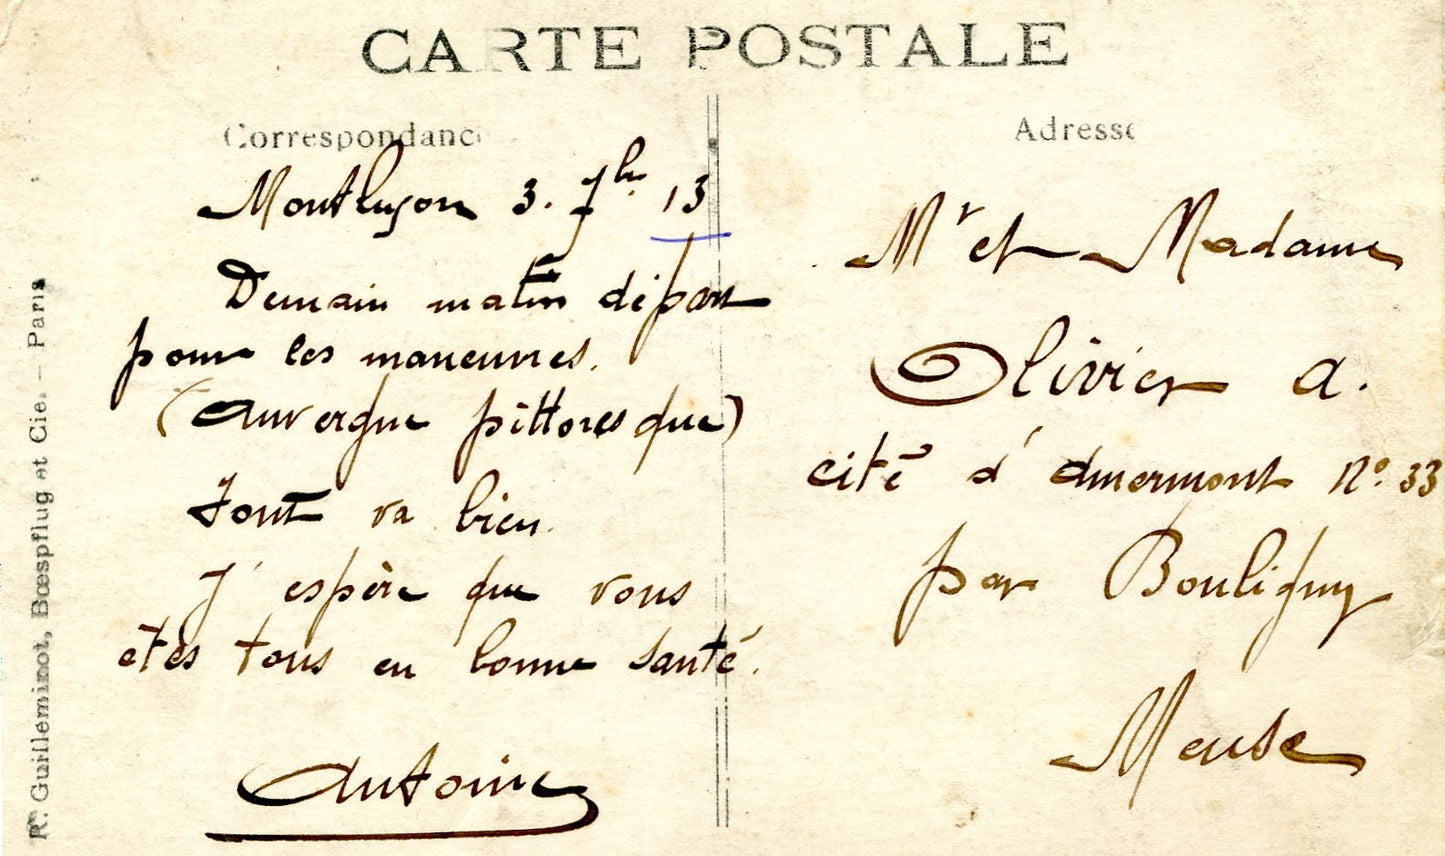 CARTE POSTALE
Correspondance
Montluçon 3. 7bre 13
Demain matin départ
pour les maneuvres.
(Auvergne pittoresque)
Tout va bien.
J'espère que vous
etes tous en bonne santé.
Antoine
Adresse
Mr et Madame
Olivier a.
cité d'amermont No. 33
par Bouligny
Meuse
R. Guilleminot, Bœspflug et Cie. – Paris